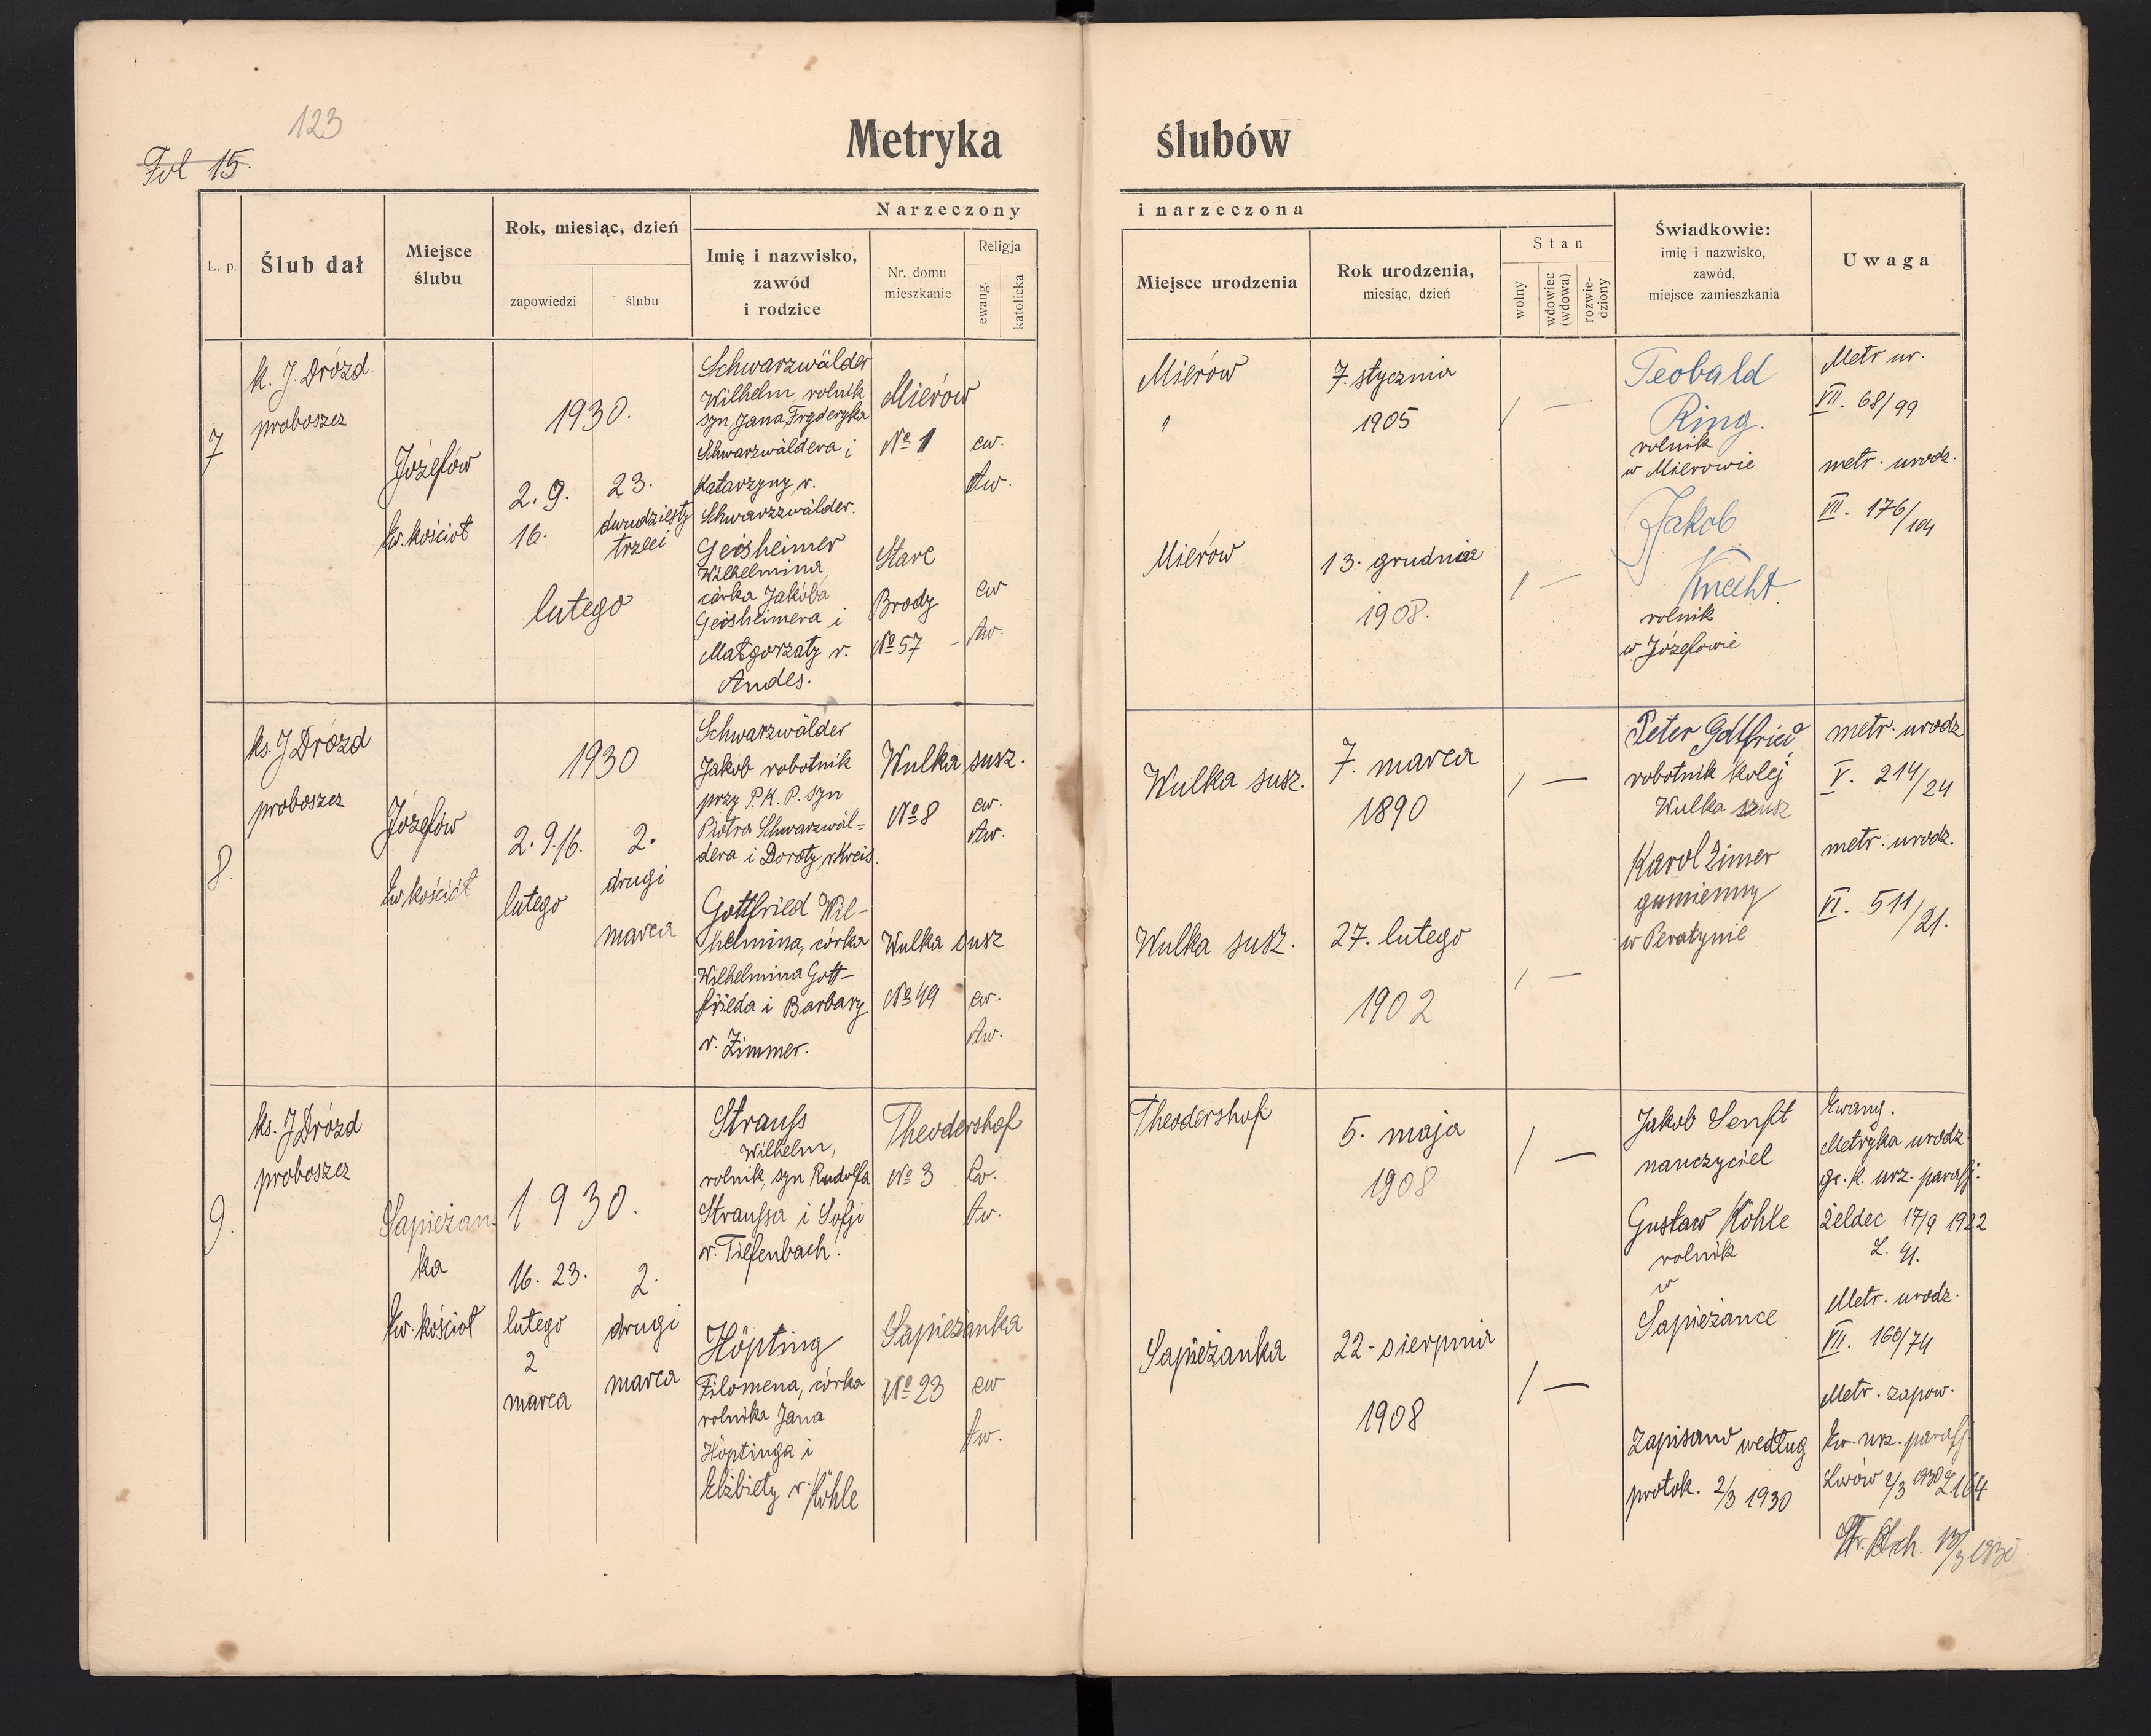 123
Fol 15.
Metryka ślubów
L. p.
Ślub dał
Miejsce
ślubu
Rok, miesiąc, dzień
zapowiedzi
ślubu
Narzeczony
Imię i nazwisko,
zawód
i rodzice
Nr. domu
mieszkanie
Religja
ewang.
katolicka
i narzeczona
Miejsce urodzenia
Rok urodzenia,
miesiąc, dzień
Stan
wolny
wdowiec
(wdowa)
rozwie-
dziony
Świadkowie:
imię i nazwisko,
zawód,
miejsce zamieszkania
Uwaga
7
k. J. Drózd
proboszcz
Józefów
Ew. kościół
1930.
2. 9.
16.
23.
dwudziesty
trzeci
lutego
Schwarzwälder
Wilhelm, rolnik
syn Jana Fryderyka
Schwarzwäldera i
Katarzyny r.
Schwarzwälder.
Mierów
No 1
ew.
Aw.
Geisheimer
Wilhelmina
córka Jakóba
Geisheimera i
Małgorzaty r.
Andes.
Stare
Brody
No 57 -
ew
Aw.
Mierów
"
7. stycznia
1905
/ —
Mierów
13. grudnia
1908.
/ —
Teobald
Ring.
rolnik
w Mierowie
Jakob
Knecht.
rolnik
w Józefowie
Metr ur.
VII. 68/99
metr. urodz.
VII. 176/104
8
ks. J Drózd
proboszcz
Józefów
Ew kościół
1930
2. 9. 16.
lutego
2.
drugi
marca
Schwarzwälder
Jakob robotnik
przy P. K. P. syn
Piotra Schwarzwäl=
dera i Doroty r. Kreis.
Wulka susz.
No 8
ew.
Aw.
Gottfried Wil-
helmina, córka
Wilhelmina Gott-
frieda i Barbary
r. Zimmer.
Wulka susz
No 49
ew.
Aw.
Wulka susz.
7. marca
1890
/ —
Wulka susz.
27. lutego
1902
/ —
Peter Gottfried
robotnik kolej
Wulka szusz
Karol Zimer
gumienny
w Peratynie
metr. urodz
V. 214/24
metr. urodz.
VI. 511/21.
9.
ks. J Drózd
proboszcz
Sapieżan-
ka
Ew. kościół
1930.
16. 23.
lutego
2
marca
2.
drugi
marca
Strauss
Wilhelm,
rolnik, syn Rudolfa
Straussa i Sofji
r. Tiefenbach.
Theodershof
No 3
Ew.
Aw.
Höpting
Filomena, córka
rolnika Jana
Höptinga i
Elżbiety r. Köhle
Sapieżanka
No 23
ew
Aw.
Theodershof
5. maja
1908
/ —
Sapieżanka
22 - sierpnia
1908
/ —
Jakob Senft
nauczyciel
Gustaw Köhle
rolnik
w
Sapieżance
Zapisano według
protok. 2/3 1930
Ewang.
Metryka urodz.
gr. k. urz. parafj.
Żeldec 17/9 1922
L. 41.
Metr. urodz.
VII. 166/74
Metr. zapow.
Ew. urz. parafj.
Lwów 2/3 1930 L 164
13/3 1930